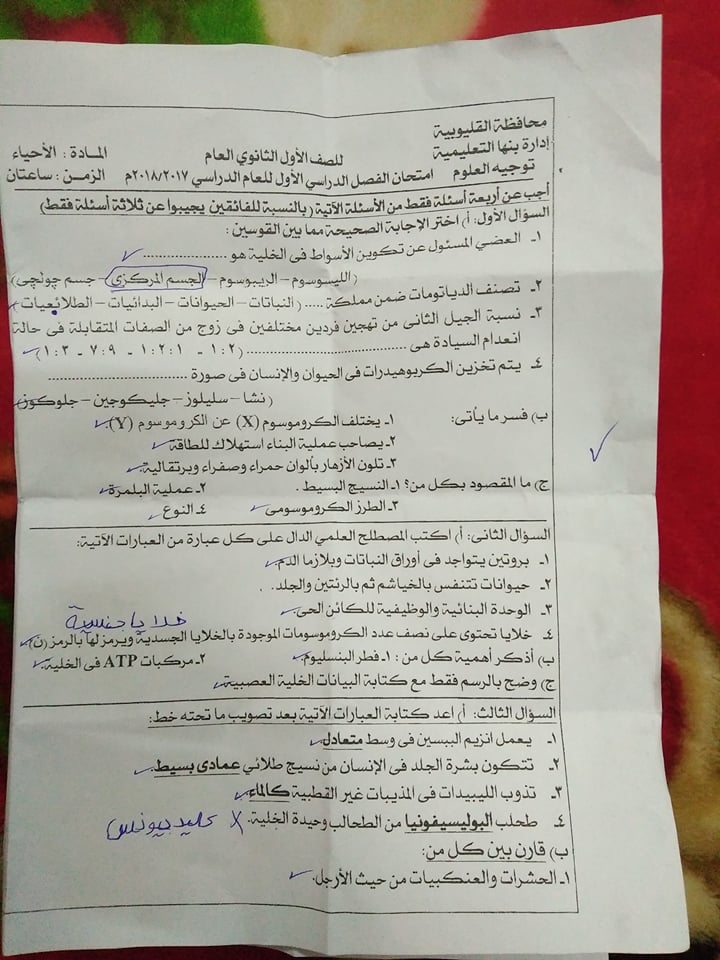 محافظة القليوبية
إدارة بنها التعليمية للصف الأول الثانوي العام المادة : الأحياء
توجيه العلوم امتحان الفصل الدراسي الأول للعام الدراسي ٢٠١٨/٢٠١٧م الزمن : ساعتان
أجب عن أربعة أسئلة فقط من الأسئلة الآتية (بالنسبة للفائقين يجيبوا عن ثلاثة أسئلة فقط)
السؤال الأول: أ) اختر الإجابة الصحيحة مما بين القوسين :
١ـ العضى المسئول عن تكوين الأسواط فى الخلية هو ....................
(الليسوسوم – الريبوسوم – الجسم المركزى – جسم چولچى)
٢ـ تصنف الدياتومات ضمن مملكة ..... (النباتات – الحيوانات – البدائيات – الطلائعيات)
٣ـ نسبة الجيل الثانى من تهجين فردين مختلفين فى زوج من الصفات المتقابلة فى حالة
انعدام السيادة هى .............................. (١:٢ - ١:٢:١ - ٧:٩ - ١:٣)
٤ـ يتم تخزين الكربوهيدرات فى الحيوان والإنسان فى صورة ..............................
(نشا – سليلوز – جليكوجين – جلوكوز)
ب) فسر ما يأتى: ١ـ يختلف الكروموسوم (X) عن الكروموسوم (Y).
٢ـ يصاحب عملية البناء استهلاك للطاقة
٣ـ تلون الأزهار بألوان حمراء وصفراء وبرتقالية.
ج) ما المقصود بكل من؟ ١ـ النسيج البسيط . ٢ـ عملية البلمرة
٣ـ الطرز الكروموسومى ٤ـ النوع
السؤال الثانى: أ) اكتب المصطلح العلمي الدال على كل عبارة من العبارات الآتية:
١ـ بروتين يتواجد فى أوراق النباتات وبلازما الدم.
٢ـ حيوانات تتنفس بالخياشم ثم بالرئتين والجلد.
٣ـ الوحدة البنائية والوظيفية للكائن الحى. خلايا جنسية
٤ـ خلايا تحتوى على نصف عدد الكروموسومات الموجودة بالخلايا الجسدية ويرمز لها بالرمز (ن)
ب) أذكر أهمية كل من : ١ـ فطر البنسليوم. ٢ـ مركبات ATP فى الخلية.
ج) وضح بالرسم فقط مع كتابة البيانات الخلية العصبية.
السؤال الثالث: أ) اعد كتابة العبارات الآتية بعد تصويب ما تحته خط:
١ـ يعمل انزيم الببسين فى وسط متعادل.
٢ـ تتكون بشرة الجلد فى الإنسان من نسيج طلائى عمادى بسيط.
٣ـ تذوب الليبيدات فى المذيبات غير القطبية كالماء.
٤ـ طحلب البوليسيفونيا من الطحالب وحيدة الخلية. X
ب) قارن بين كل من:
١ـ الحشرات والعنكبيات من حيث الأرجل.